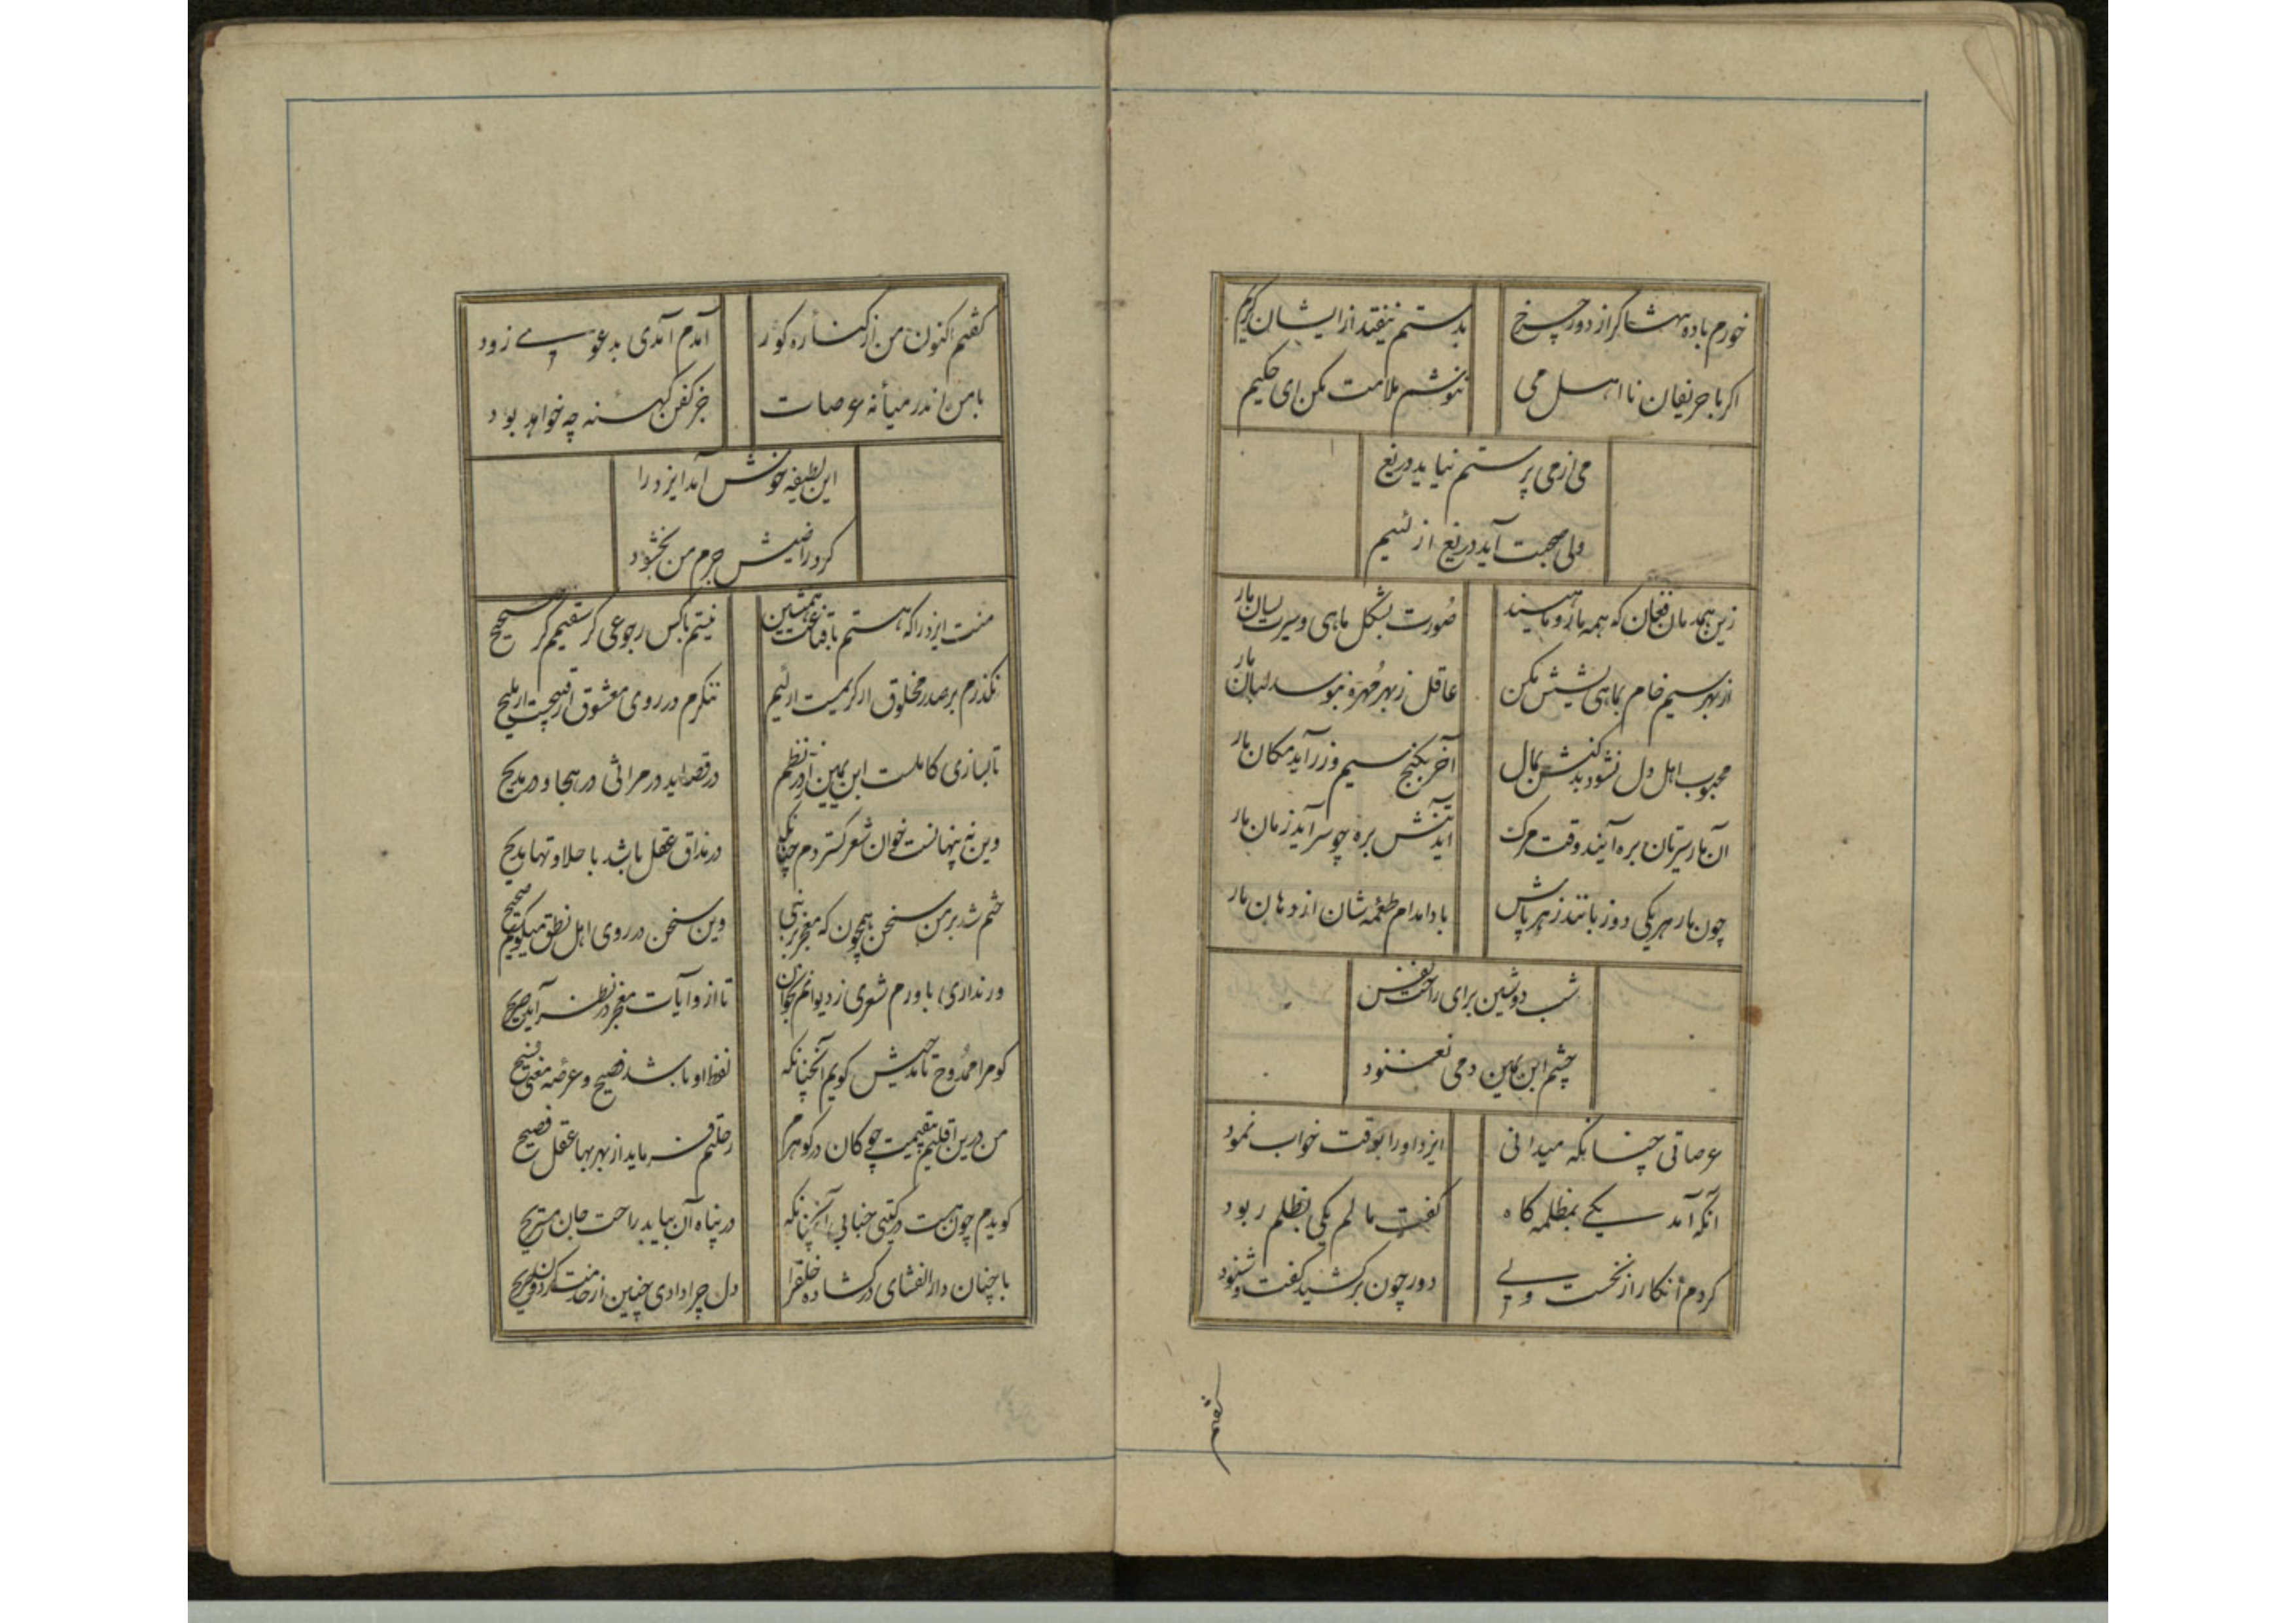 خورم باده بهشا گر از دور چرخ
بدستم نیفتد از ایشان کریم
اکر با حریفان نااهل می
ننوشم ملامت مکن ای حکیم
می از می پرستم نیاید دریغ
ولی صحبت آید دریغ از لئیم
زین همدمان فغان که همه مار و ماهیند
صورت بشکل ماهی و سیرت بسان مار
از بهر سیم خام بماهی مکن
عاقل ز بهر مهره نبوسد لبان مار
محبوب اهل دل نشود بدکنش بمال
آخر بکنج سیم و زر آید مکان مار
آن مار سیرتان بره آیند وقت مرک
اید بره چو سر آید زمان مار
چون مار هر یکی دو زبانند زهر پاش
بادا مدام طعمه شان از دهان مار
شب دوشین برای راحت نفس
چشم ابن یمین دمی نغنود
عرصاتی چنانکه میدانی
ایزد او را بوقت خواب نمود
آنکه آمد یکی بمظلمه کاه
کفت مالم یکی بظلم ربود
کردم انکار از نخست ولی
دور چون برکشید کفت و شنود
کفتم
کفتم اکنون من از کناره کور
آمدم آمدی بدعوی زود
با من اندر میانه عرصات
جز کفن کهنه چه خواهد بود
این لطیفه خوش آمد ایزد را
کرد راضیش جرم من بخشود
منت ایزد را که هستم با قناعت همنشین
نیستم با کس رجوعی کر سقیمم کر صحیح
نکذرم بر صدر مخلوق ار کریمست ار لئیم
ننکرم در روی معشوق ار قبیحست ار ملیح
تا بتازی کاملست ابن یمین در نظم
در قصاید در مراثی در هجا و در مدیح
وین نه پنهانست خوان شعر کستردم چنانکه
در مذاق عقل باشد با حلاوتها
ختم شد بر من سخن همچون که معجز بر نبی
وین سخن در روی اهل نطق میکویم صحیح
ور نداری باورم شعری ز دیوانم بخوان
تا از و آیات معجز در نظر آید صریح
کو مرا ممدوح تا مدیش کویم آنچنانکه
لفظ او باشد فصیح و عرصه معنی فسیح
من درین اقلیم بقیمت چو کان در کوهرم
رحلتم فرماید از بهر بها عقل فصیح
کویدم چون هست در کیتی جنابی آنچنانکه
در پناه آن بیاید راحت جان مستریح
با چنان دار الشفای در کشاده خلق را
دل چرا دادی چنین از خدمت کردون جریح